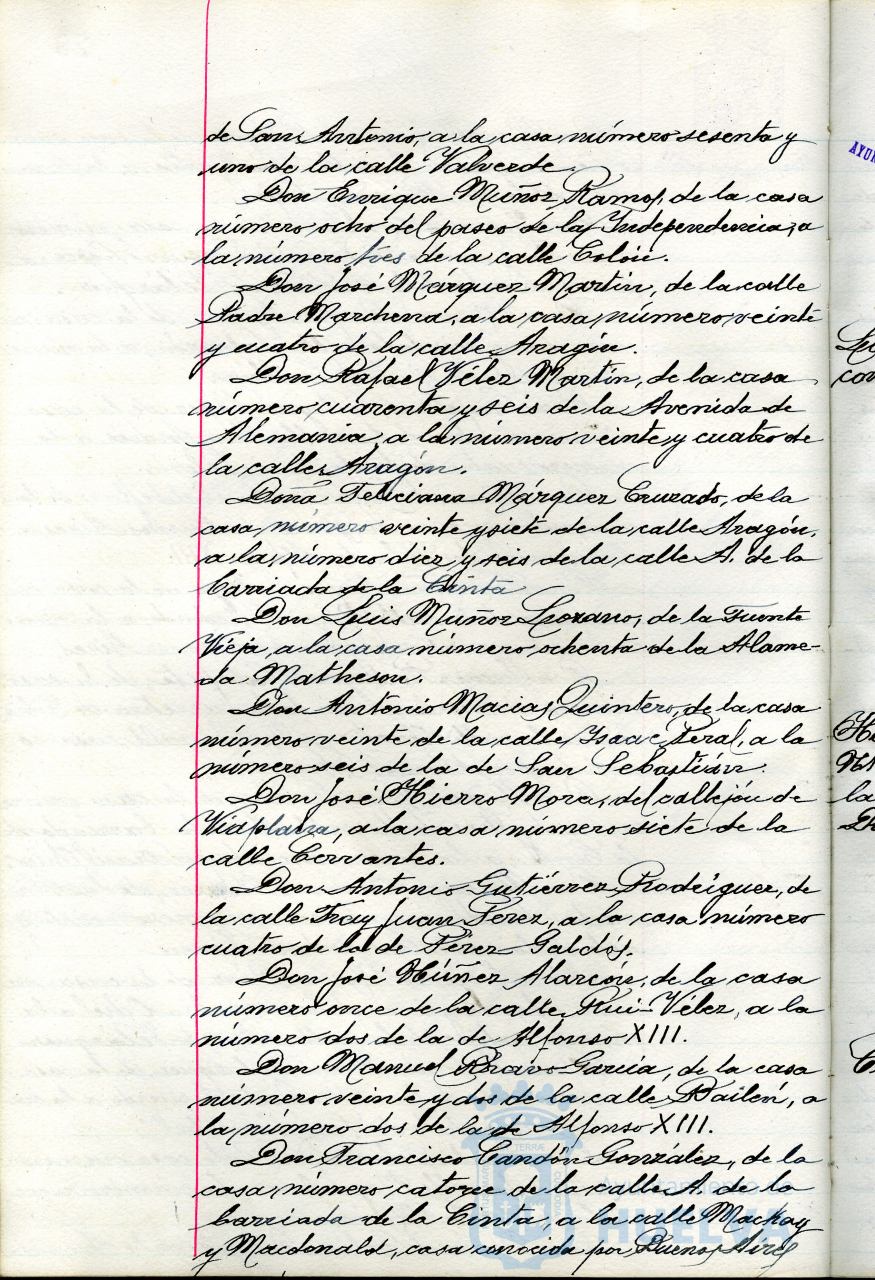 de San Antonio, a la casa número sesenta y
uno de la calle Valverde.
Don Enrique Muñoz Ramos, de la casa
número ocho del paseo de la Independencia, a
la número tres de la calle Colón.
Don José Márquez Martín, de la calle
Padre Marchena, a la casa número veinte
y cuatro de la calle Aragón.
Don Rafael Vélez Martín, de la casa
número cuarenta y seis de la Avenida de
Alemania, a la número veinte y cuatro de
la calle Aragón.
Doña Feliciana Márquez Cruzado, de la
casa número veinte y siete de la calle Aragón,
a la número diez y seis de la calle A. de la
barriada de la Cinta
Don Luis Muñoz Lozano, de la Fuente
Vieja, a la casa número ochenta de la Alame-
da Matheson.
Don Antonio Macias Quintero, de la casa
número veinte de la calle Isaac Peral, a la
número seis de la de San Sebastián.
Don José Hierro Mora, del callejón de
Viaplana, a la casa número siete de la
calle Cervantes.
Don Antonio Gutiérrez Rodríguez, de
la calle Fray Juan Pérez, a la casa número
cuatro de la de Pérez Galdós.
Don José Núñez Alarcón, de la casa
número once de la calle Rui-Vélez, a la
número dos de la de Alfonso XIII.
Don Manuel Bravo García, de la casa
número veinte y dos de la calle Bailén, a
la número dos de la de Alfonso XIII.
Don Francisco Candón González, de la
casa número catorce de la calle A. de la
barriada de la Cinta, a la calle Mackay
y Macdonald, casa conocida por Buenos Aires
Ayuntamiento de
HUELVA